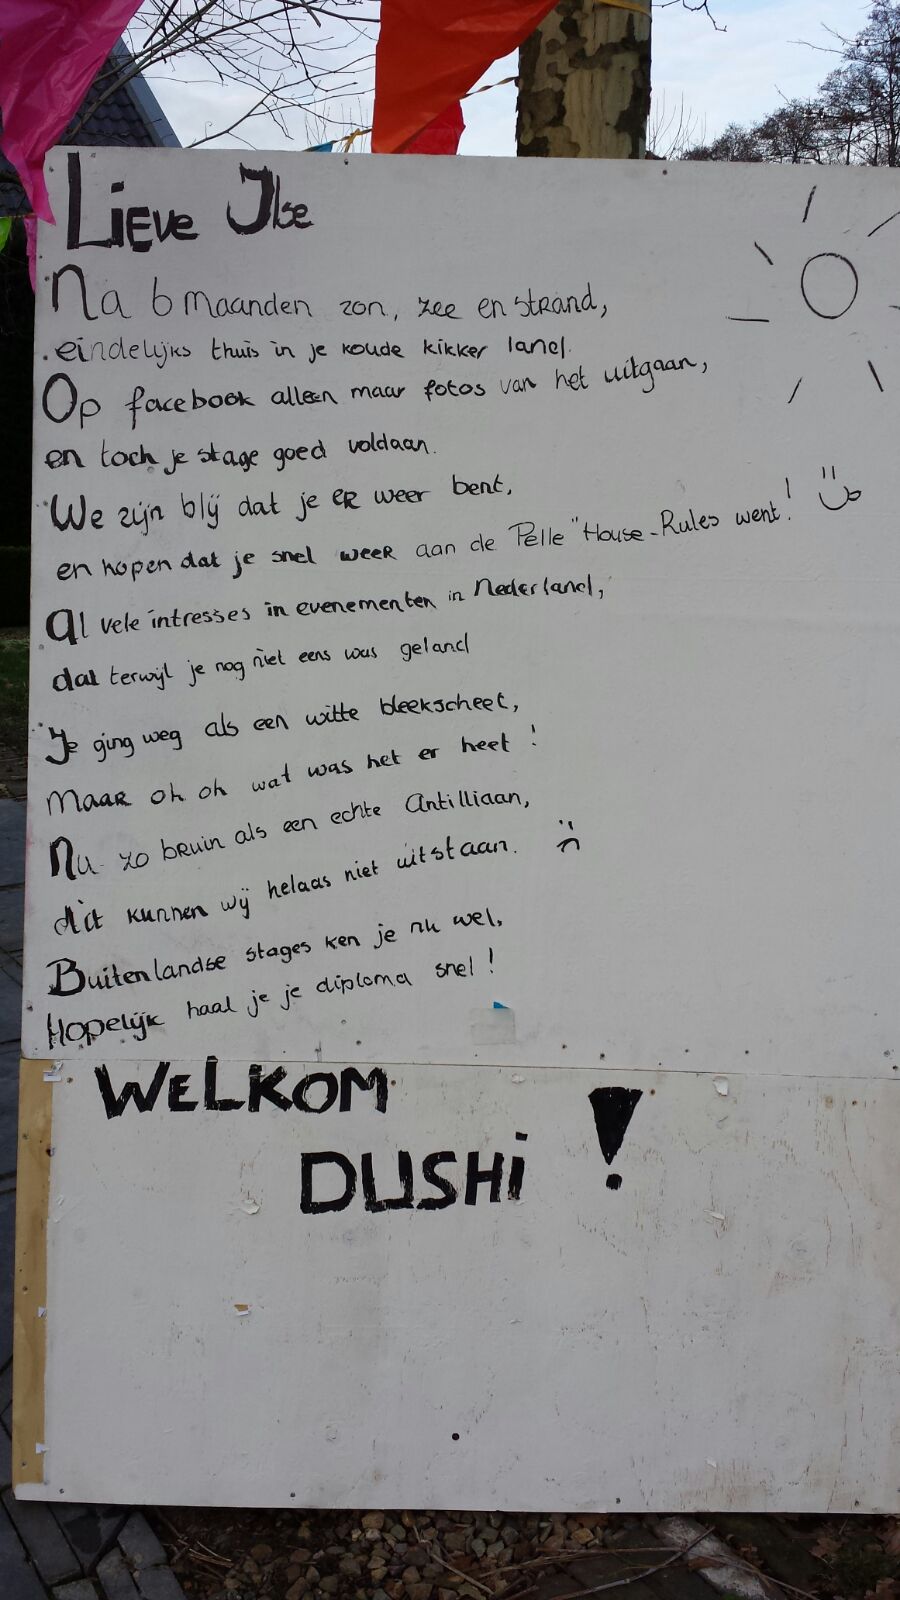 Lieve Ilse
Na 6 maanden zon, zee en strand,
eindelijks thuis in je koude kikker land.
Op facebook alleen maar fotos van het uitgaan,
en toch je stage goed voldaan.
We zijn blij dat je er weer bent,
en hopen dat je snel weer aan de Pelle "House-Rules went!
al vele intresses in evenementen in Nederland,
dat terwijl je nog niet eens was geland
Je ging weg als een witte bleekscheet,
Maar oh oh wat was het er heet!
Nu zo bruin als een echte Antilliaan,
dit kunnen wij helaas niet uitstaan.
Buitenlandse stages ken je nu wel,
Hopelijk haal je je diploma snel!
WELKOM
DUSHi !